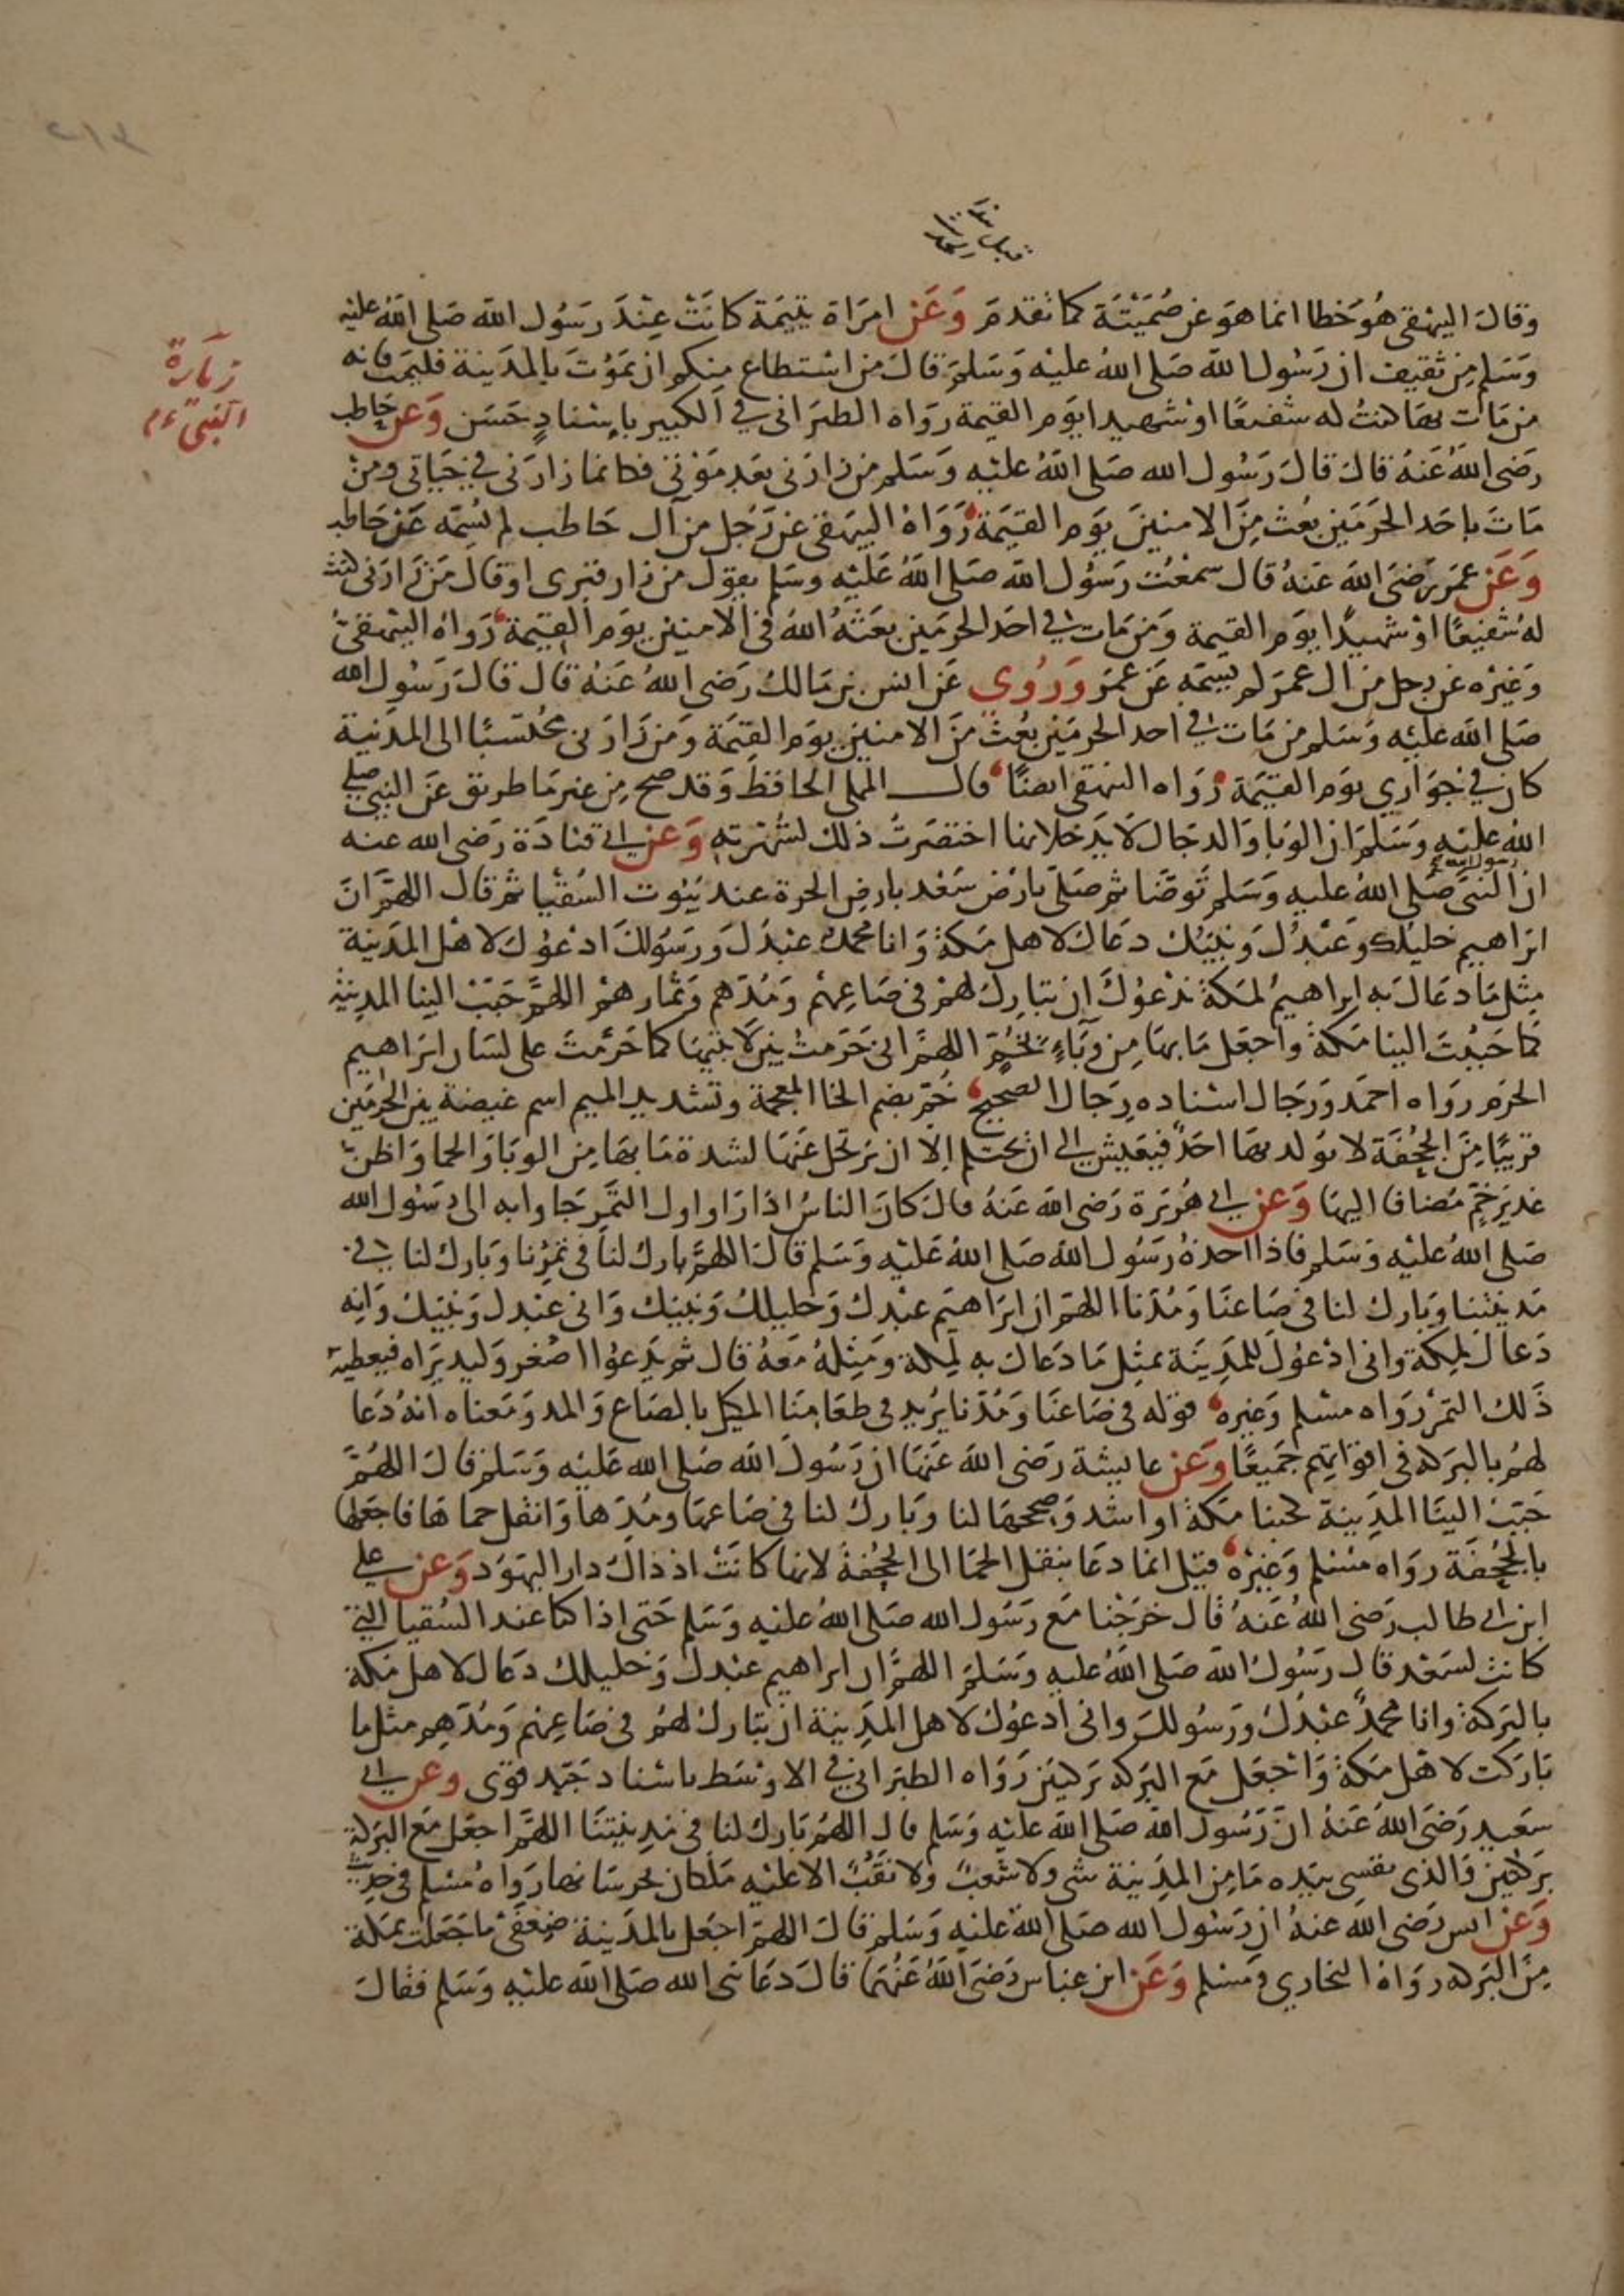 ٢١٣
زيارة
النبي ءم
وقال البيهقي هو خطا انما هو عن صميتة كما تقدم وعن امراة يتيمة كانت عند رسول الله صلى الله عليه
وسلم من ثقيف ان رسول الله صلى الله عليه وسلم قال من استطاع منكم ان يموت بالمدينة فليمت فانه
من مات بها كنت له شفيعا او شهيدا يوم القيمة رواه الطبراني في الكبير باسناد حسن وعن حاطب
رضي الله عنه قال قال رسول الله صلى الله عليه وسلم من زارني بعد موتي فكانما زارني في حياتي ومن
مات باحد الحرمين بعث من الامنين يوم القيمة رواه البيهقي عن رجل من آل حاطب لم يسمه عن حاطب
وعن عمر رضي الله عنه قال سمعت رسول الله صلى الله عليه وسلم يقول من زار قبري او قال من زارني كنت
له شفيعا او شهيدا يوم القيمة ومن مات في احد الحرمين بعثه الله في الامنين يوم القيمة رواه البيهقي
وغيره عن رجل من ال عمر لم يسمه عن عمر وروي عن انس بن مالك رضي الله عنه قال قال رسول الله
صلى الله عليه وسلم من مات في احد الحرمين بعث من الامنين يوم القيمة ومن زارني محتسبا الى المدينة
كان في جواري يوم القيمة رواه البيهقي ايضا قال المملي الحافظ وقد صح من غير ما طريق عن النبي صلى
الله عليه وسلم ان الوبا والدجال لا يدخلانها اختصرت ذلك لشهرته وعن ابي قتادة رضي الله عنه
ان النبي صلى الله عليه وسلم توضا ثم صلى بارض سعد بارض الحرة عند بيوت السقيا ثم قال اللهم ان
ابراهيم خليلك وعبدك ونبيك دعاك لاهل مكة وانا محمد عبدك ورسولك ادعوك لاهل المدينة
مثل ما دعاك به ابراهيم لمكة ندعوك ان تبارك لهم في صاعهم ومدهم وثمارهم اللهم حبب الينا المدينة
كما حببت الينا مكة واجعل ما بها من وباء بخم اللهم اني حرمت بين لابتيها كما حرمت على لسان ابراهيم
الحرم رواه احمد ورجال اسناده رجال الصحيح خم بضم الخا المعجمة وتشديد الميم اسم غيضة بين الحرمين
قريبا من الجحفة لا يولد بها احد فيعيش الى ان يحتلم الا ان يرتحل عنها لشدة ما بها من الوبا والحما واظن
غدير خم مضافا اليها وعن ابي هريرة رضي الله عنه قال كان الناس اذا راوا اول التمر جاوا به الى رسول الله
صلى الله عليه وسلم فاذا اخذه رسول الله صلى الله عليه وسلم قال اللهم بارك لنا في ثمرنا وبارك لنا في
مدينتنا وبارك لنا في صاعنا ومدنا اللهم ان ابراهيم عبدك وخليلك ونبيك واني عبدك ونبيك وانه
دعاك لمكة واني ادعوك للمدينة بمثل ما دعاك به لمكة ومثله معه قال ثم يدعوا اصغر وليد يراه فيعطيه
ذلك التمر رواه مسلم وغيره قوله في صاعنا ومدنا يريد في طعامنا المكيل بالصاع والمد ومعناه انه دعا
لهم بالبركة في اقواتهم جميعا وعن عايشة رضي الله عنها ان رسول الله صلى الله عليه وسلم قال اللهم
حبب الينا المدينة كحبنا مكة او اشد وصححها لنا وبارك لنا في صاعها ومدها وانقل حماها فاجعلها
بالجحفة رواه مسلم وغيره قيل انما دعا بنقل الحما الى الجحفة لانها كانت اذ ذاك دار اليهود وعن علي
ابن ابي طالب رضي الله عنه قال خرجنا مع رسول الله صلى الله عليه وسلم حتى اذا كنا عند السقيا التي
كانت لسعد قال رسول الله صلى الله عليه وسلم اللهم ان ابراهيم عبدك وخليلك دعاك لاهل مكة
بالبركة وانا محمد عبدك ورسولك واني ادعوك لاهل المدينة ان تبارك لهم في صاعهم ومدهم مثل ما
باركت لاهل مكة واجعل مع البركة بركتين رواه الطبراني في الاوسط باسناد جيد قوي وعن ابي
سعيد رضي الله عنه ان رسول الله صلى الله عليه وسلم قال اللهم بارك لنا في مدينتنا اللهم اجعل مع البركة
بركتين والذي نفسي بيده ما من المدينة شي ولا شعب ولا نقب الا عليه ملكان يحرسانها رواه مسلم في حديث
وعن انس رضي الله عنه ان رسول الله صلى الله عليه وسلم قال اللهم اجعل بالمدينة ضعفي ما جعلت بمكة
من البركة رواه البخاري ومسلم وعن ابن عباس رضي الله عنهما قال دعا نبي الله صلى الله عليه وسلم فقال